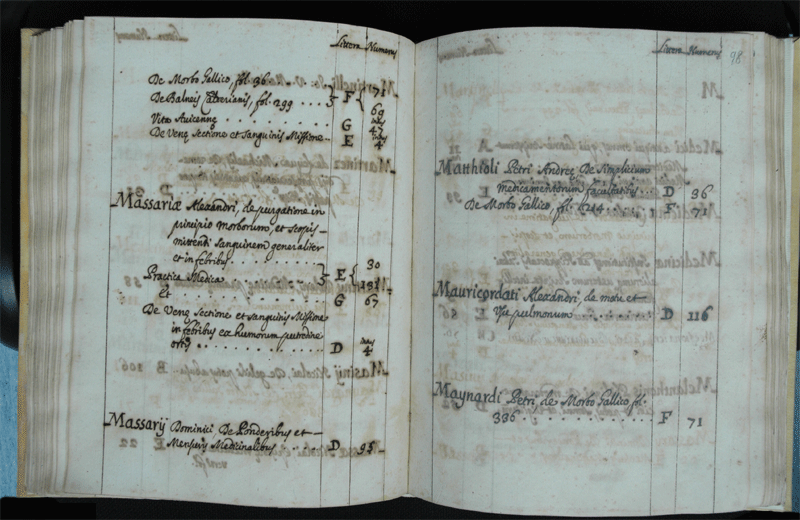 Littera Numerus
De Morbo Gallico, fol. 36
De Balneis Calderianis, fol. 299 . . . . F 71
69
Vitæ Avicennę . . . . . . . G
De Venę Sectione et Sanguinis Missione E 4
Massariæ Alexandri, de purgatione in
principio morborum, et scopis
mittendi Sanguinem generaliter
et in febribus . . . . . . . . 30
Practica Medica E
Et . . . . . . . . G 67
De Venę Sectione et Sanguinis Missione
in febribus ex humorum putredine
ortis . . . . . . . . D 4
Massarij Dominici De Ponderibus et
Mensuris Medicinalibus . . D 95
Littera Numerus
98
Matthioli Petri Andreę De Simplicium
medicamentorum facultatibus . . . D 36
De Morbo Gallico, fol. 214 . . . . . F 71
Mauricordati Alexandri, de motu et
Usu pulmonum . . . . . . . D 116
Maynardi Petri de Morbo Gallico fol.
336 . . . . . . . . . . F 71